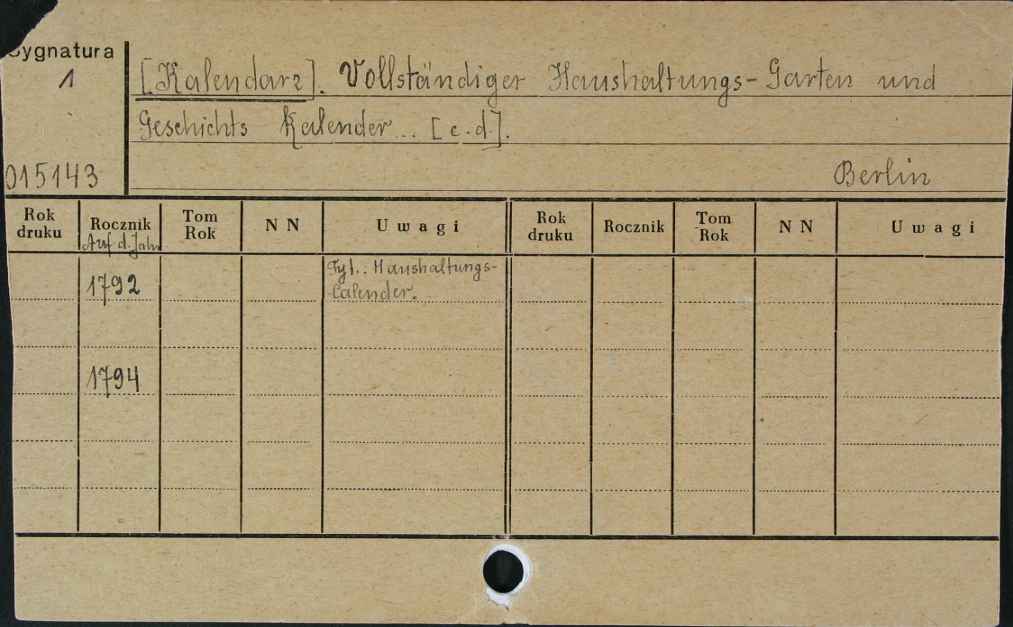 Sygnatura
1
[Kalendarz]. Vollständiger Haushaltungs-Garten und
Geschichts Kalender... [c.d].
015143
Berlin
Rok druku Rocznik Tom Rok N N Uwagi Rok druku Rocznik Tom Rok N N Uwagi
Auf d. Jahr
1792 Tyt.: Haushaltungs-
Calender.
1794